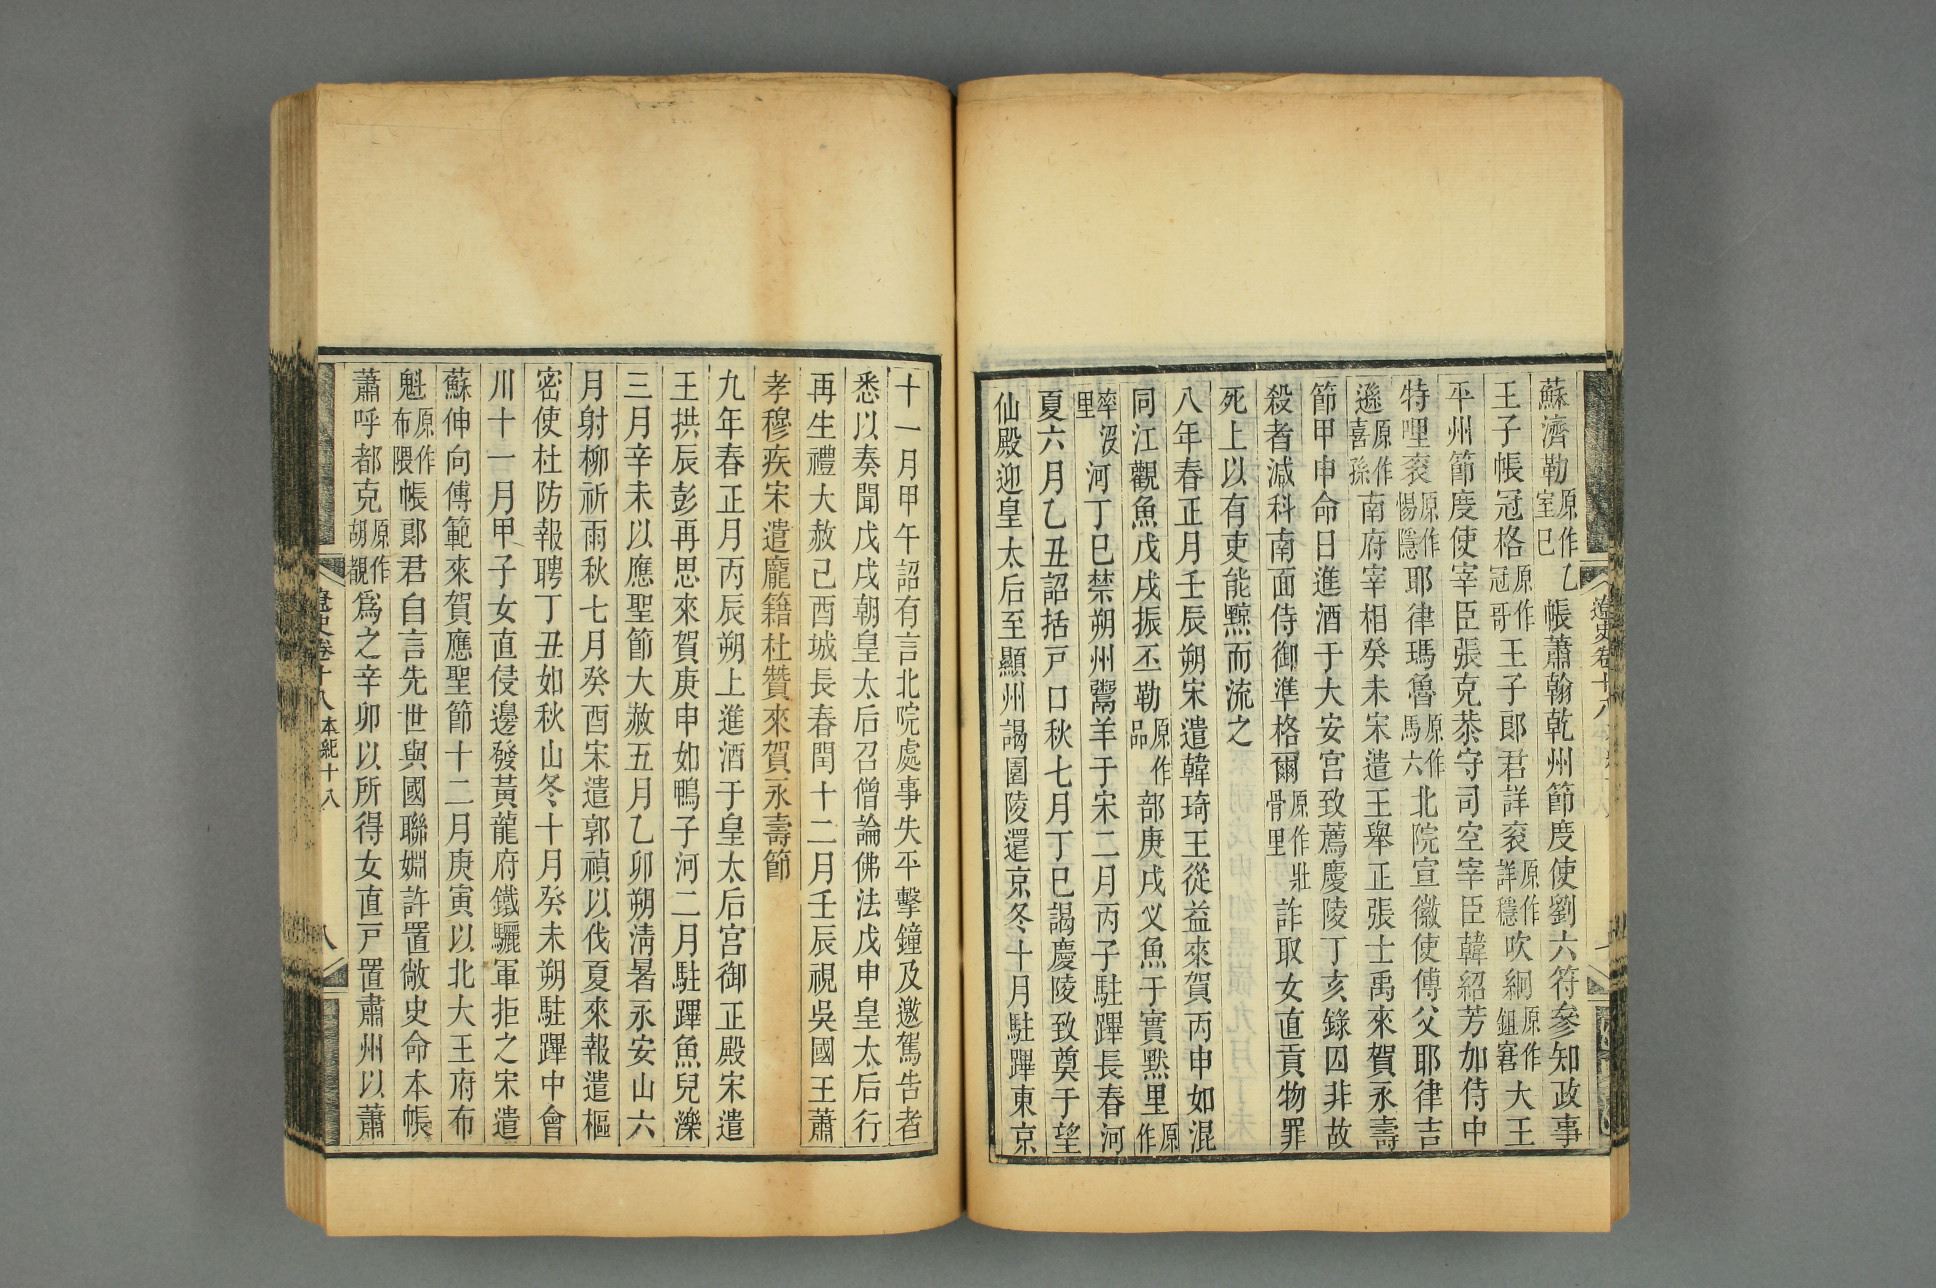 蘇濟勒原作乙室巳帳蕭翰乾州節度使劉六符參知政事
王子帳冠格原作冠哥王子郎君詳袞原作詳穩吹綱原作鉏窘大王
平州節度使宰臣張克恭守司空宰臣韓紹芳加侍中
特哩袞原作惕隱耶律瑪魯原作馬六北院宣徽使傅父耶律吉
遜原作喜孫南府宰相癸未宋遣王舉正張士禹來賀永壽
節甲申命日進酒于大安宮致薦慶陵丁亥錄囚非故
殺者減科南面侍御準格爾原作壯骨里詐取女直貢物罪
死上以有吏能黥而流之
八年春正月壬辰朔宋遣韓琦王從益來賀丙申如混
同江觀魚戊戌振丕勒原作品部庚戌乂魚于實黙里原作
率沒里河丁巳禁朔州鬻羊于宋二月丙子駐蹕長春河
夏六月乙丑詔括戸口秋七月丁巳謁慶陵致奠于望
仙殿迎皇太后至顯州謁園陵還京冬十月駐蹕東京
十一月甲午詔有言北院處事失平擊鐘及邀駕告者
悉以奏聞戊戌朝皇太后召僧論佛法戊申皇太后行
再生禮大赦己酉城長春閏十二月壬辰視吳國王蕭
孝穆疾宋遣龐籍杜贊來賀永壽節
九年春正月丙辰朔上進酒于皇太后宮御正殿宋遣
王拱辰彭再思來賀庚申如鴨子河二月駐蹕魚兒濼
三月辛未以應聖節大赦五月乙卯朔淸暑永安山六
月射柳祈雨秋七月癸酉宋遣郭禎以伐夏來報遣樞
密使杜防報聘丁丑如秋山冬十月癸未朔駐蹕中會
川十一月甲子女直侵邊發黃龍府鐵驪軍拒之宋遣
蘇伸向傅範來賀應聖節十二月庚寅以北大王府布
魁原作布隈帳郎君自言先世與國聯婣許置敞史命本帳
蕭呼都克原作胡覩爲之辛卯以所得女直戸置肅州以蕭
遼史卷十八 本紀十八 八